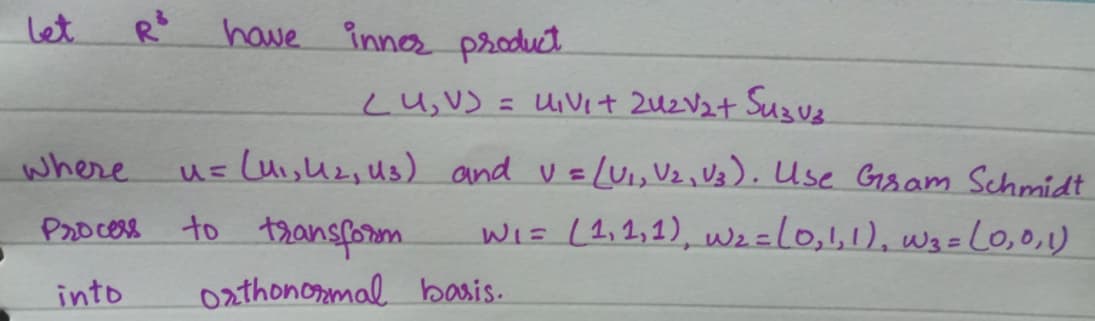 Let R³ have inner product
⟨u,v⟩ = u₁v₁ + 2u₂v₂ + 5u₃v₃
where u = (u₁, u₂, u₃) and v = (v₁, v₂, v₃). Use Gram Schmidt
Process to transform w₁ = (1,1,1), w₂ = (0,1,1), w₃ = (0,0,1)
into orthonormal basis.